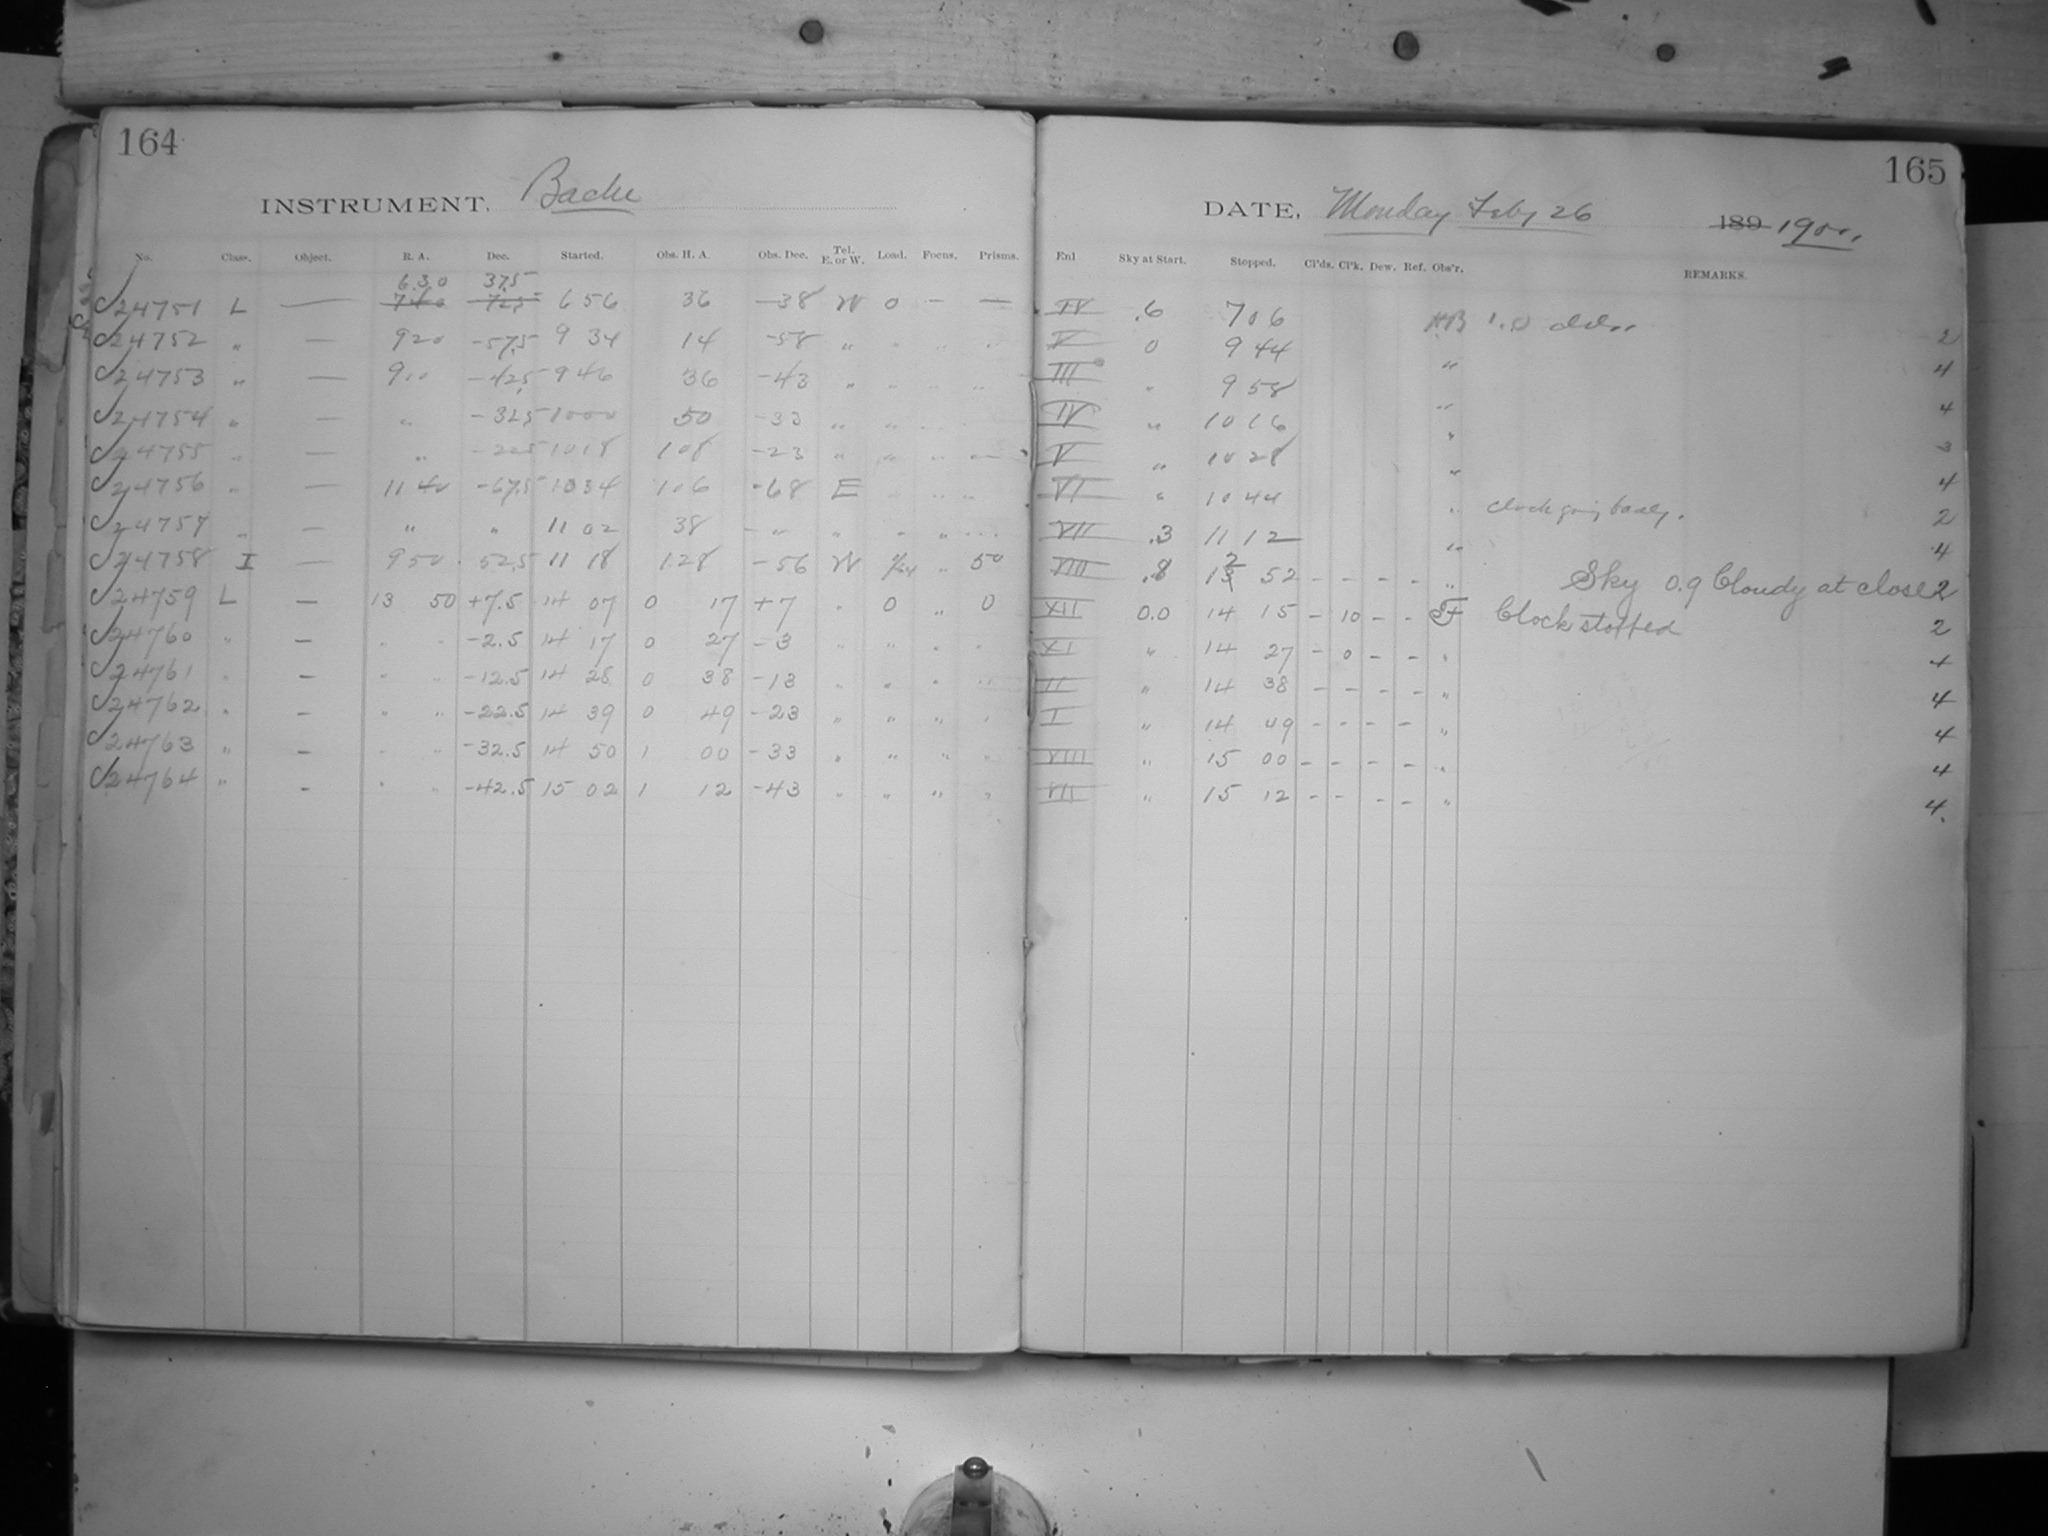 164
INSTRUMENT, Bache
No. Class. Object. R. A. Dec. Started. Obs. H. A. Obs. Dec. Tel. E. or W. Load. Focus. Prisms.
6 30 375
24751 L — 740 -725 6 56 36 -38 W 0 - —
24752 " — 920 -575 9 34 14 -58 " " " "
24753 " — 900 -425 9 46 36 -43 " " " "
24754 " — " -325 1000 50 -33 " "
24755 " — " -225 1018 108 -23 " " "
24756 " — 1140 -675 1034 106 -68 E " "
24757 " — " " 11 02 38 - " " " "
24758 I — 950 -525 11 18 128 -56 W " 50
24759 L — 13 50 +7.5 14 07 0 17 +7 " 0 " 0
24760 " — " " -2.5 14 17 0 27 -3 " " " "
24761 " — " " -12.5 14 28 0 38 -13 " " " "
24762 " — " " -22.5 14 39 0 49 -23 " " " "
24763 " — " " -32.5 14 50 1 00 -33 " " " "
24764 " — " " -42.5 15 02 1 12 -43 " " " "
165
DATE, Monday Feby 26 189 1900.
Enl Sky at Start. Stopped. Cl'ds. Cl'k. Dew. Ref. Obs'r. REMARKS.
IV .6 7 06 2
V 0 9 44 " 4
III " 9 58 " 4
IV " 10 16 " 3
V " 10 28 " 4
VI " 10 44 " clock going badly. 2
VII .3 11 12 " 4
VIII .8 12 52 - - - - " Sky 0.9 Cloudy at close 2
XII 0.0 14 15 - 10 - - Clock stopped 2
XI " 14 27 - 0 - - " 4
II " 14 38 - - - - " 4
I " 14 49 - - - - " 4
XIII " 15 00 - - - - " 4
VII " 15 12 - - - - " 4.